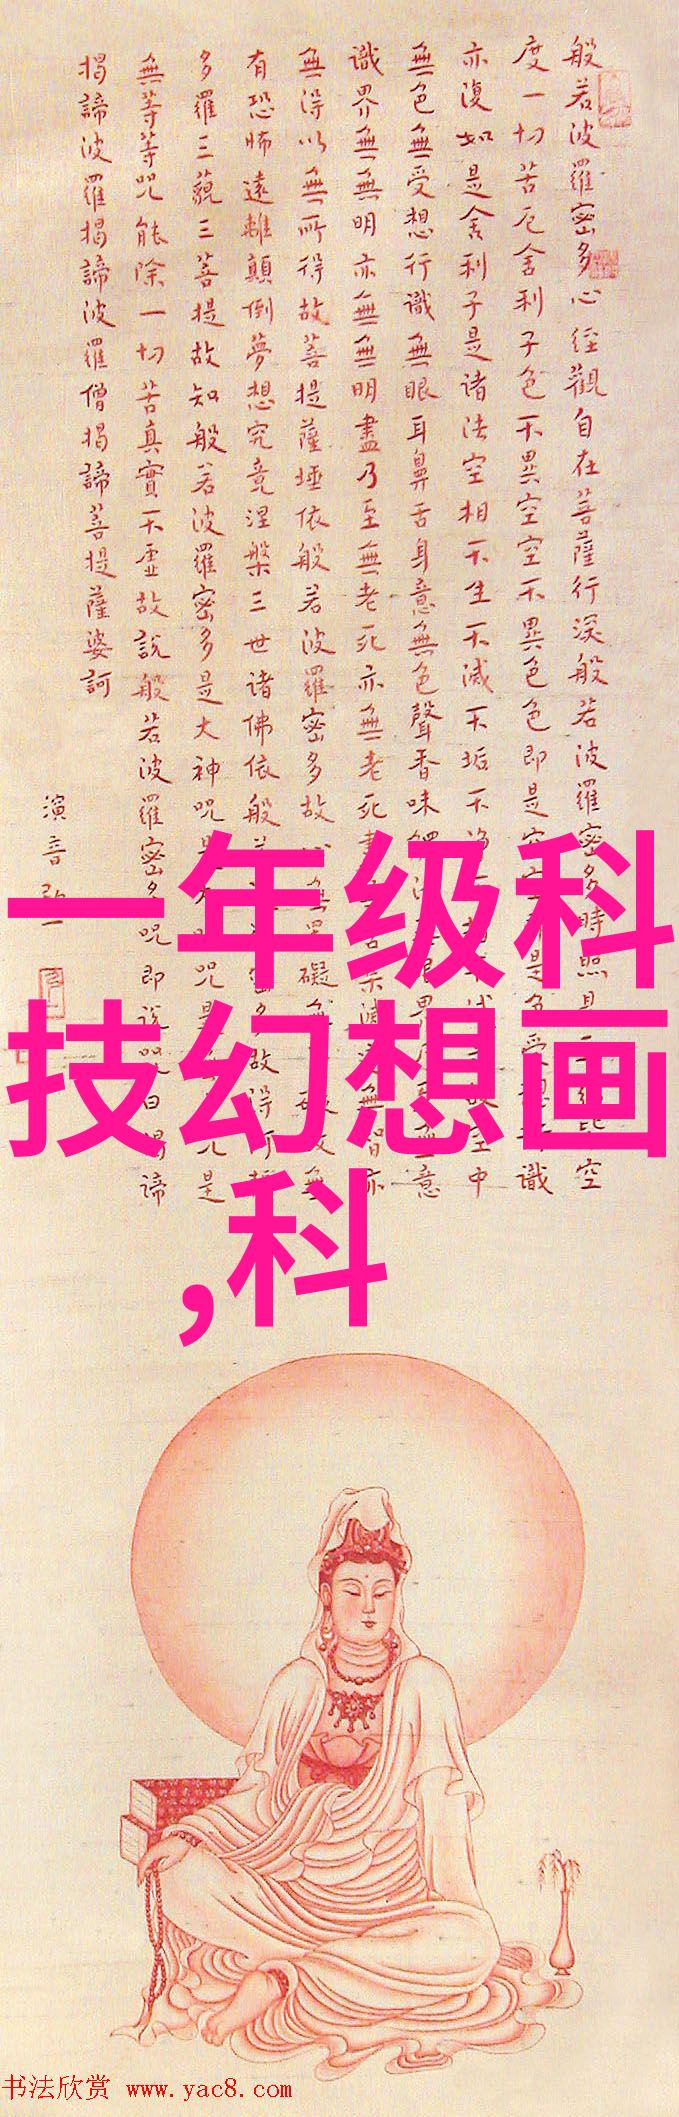 般若波羅密多心経觀自在菩薩行深般若波羅密多時照見空
度一切苦厄舍利子色不異空空不異色色即是空是色受想識
亦復如是舍利子是諸法空相不生不滅不垢不淨空中
無色無受想行識無眼耳鼻舌身意無色聲香味界無意
識界無無明亦無無明盡乃至無老死亦無老死盡苦滅無智亦
無得以無所得故菩提薩埵依般若波羅密多故心無罣礙無故無
有恐怖遠離顛倒夢想究竟涅槃三世諸佛依般若多故得阿耨
多羅三藐三菩提故知般若波羅密多是大神咒是咒是咒是
無等等咒能除一切苦真實不虛故說般若波羅密多咒即說咒曰揭諦
揭諦波羅揭諦波羅僧揭諦菩提薩婆訶
演音弘一
一年级科
技幻想画
,科
书法欣赏 www.yac8.com